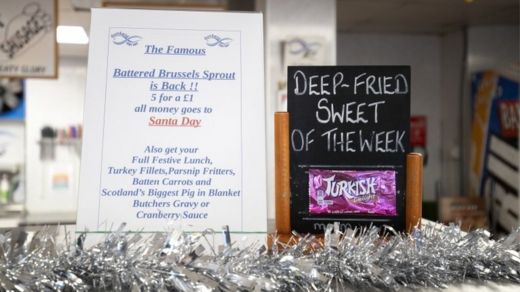 The Famous
Battered Brussels Sprout
is Back !!
5 for a £1
all money goes to
Santa Day
Also get your
Full Festive Lunch,
Turkey Fillets,Parsnip Fritters,
Batten Carrots and
Scotland's Biggest Pig in Blanket
Butchers Gravy or
Cranberry Sauce
DEEP-FRIED
SWEET
OF THE WEEK
TURKISH
Delight
SAUSAGES